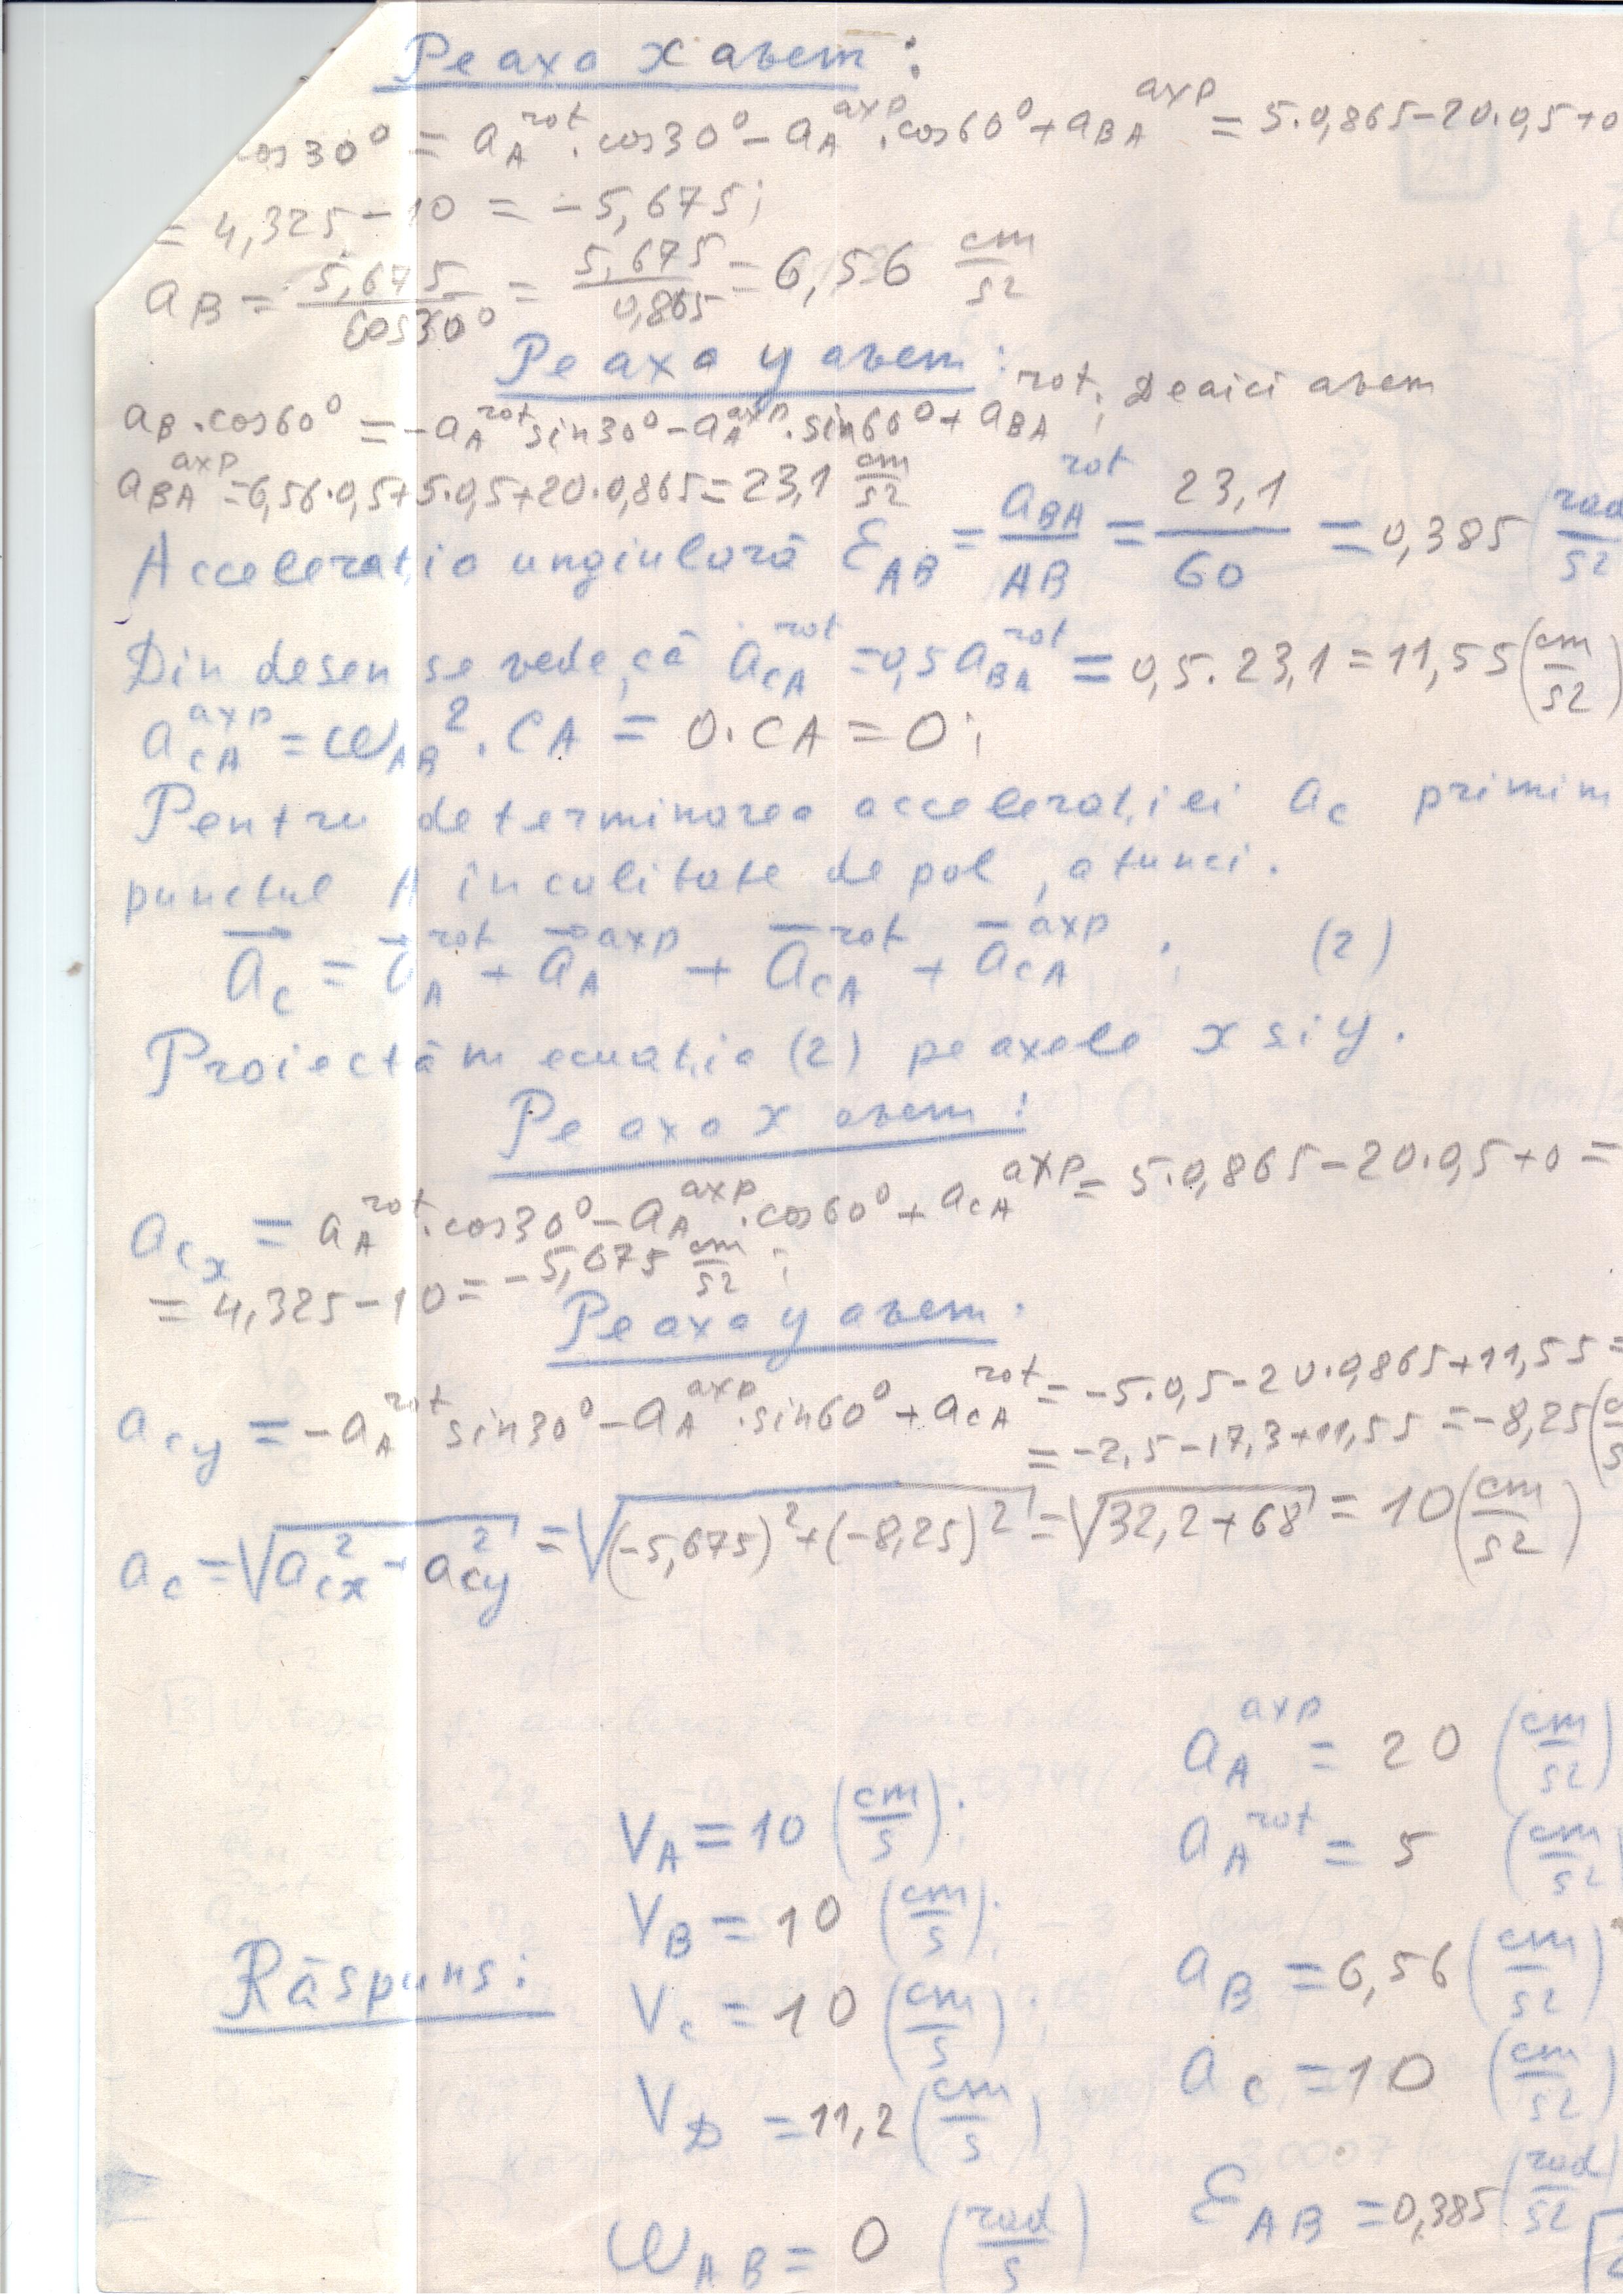 Pe axa x avem:
cos30⁰ = a_A^rot · cos30⁰ − a_A^axp · cos60⁰ + a_BA^axp = 5·0,865−20·0,5+0
= 4,325 − 10 = −5,675;
a_B = 5,675/cos30⁰ = 5,675/0,865 = 6,56 cm/s2
Pe axa y avem:
a_B · cos60⁰ = −a_A^rot sin30⁰ − a_A^axp · sin60⁰ + a_BA^rot; De aici avem
a_BA^axp = 6,56·0,5+5·0,5+20·0,865 = 23,1 cm/s2
Accelerația ungiulară ε_AB = a_BA^rot/AB = 23,1/60 = 0,385 (rad/s2
Din desen se vede, că a_CA^rot = 0,5 a_BA^rot = 0,5 · 23,1 = 11,55 (cm/s2)
a_CA^axp = ω_AB² · CA = 0 · CA = 0;
Pentru determinarea accelerației a_c primim
punctul A în calitate de pol, atunci.
a⃗_c = a⃗_A^rot + a⃗_A^axp + a̅_CA^rot + a̅_CA^axp; (2)
Proiectăm ecuația (2) pe axele x si y.
Pe axa x avem:
a_cx = a_A^rot · cos30⁰ − a_A^axp · cos60⁰ + a_CA^axp = 5·0,865−20·0,5+0 =
= 4,325 − 10 = −5,675 cm/s2;
Pe axa y avem.
a_cy = −a_A^rot sin30⁰ − a_A^axp · sin60⁰ + a_CA^rot = −5·0,5−20·0,865+11,55 =
= −2,5−17,3+11,55 = −8,25 (
a_c = √(a_cx² + a_cy²) = √((−5,675)² + (−8,25)²) = √(32,2+68) = 10 (cm/s2)
a_A^axp = 20 (cm/s2)
V_A = 10 (cm/s);
a_A^rot = 5 (cm/s2
V_B = 10 (cm/s);
a_B = 6,56 (cm/s2)
Răspuns:
V_c = 10 (cm/s);
a_c = 10 (cm/s2)
V_D = 11,2 (cm/s)
ε_AB = 0,385 (rad/s2)
ω_AB = 0 (rad/s)